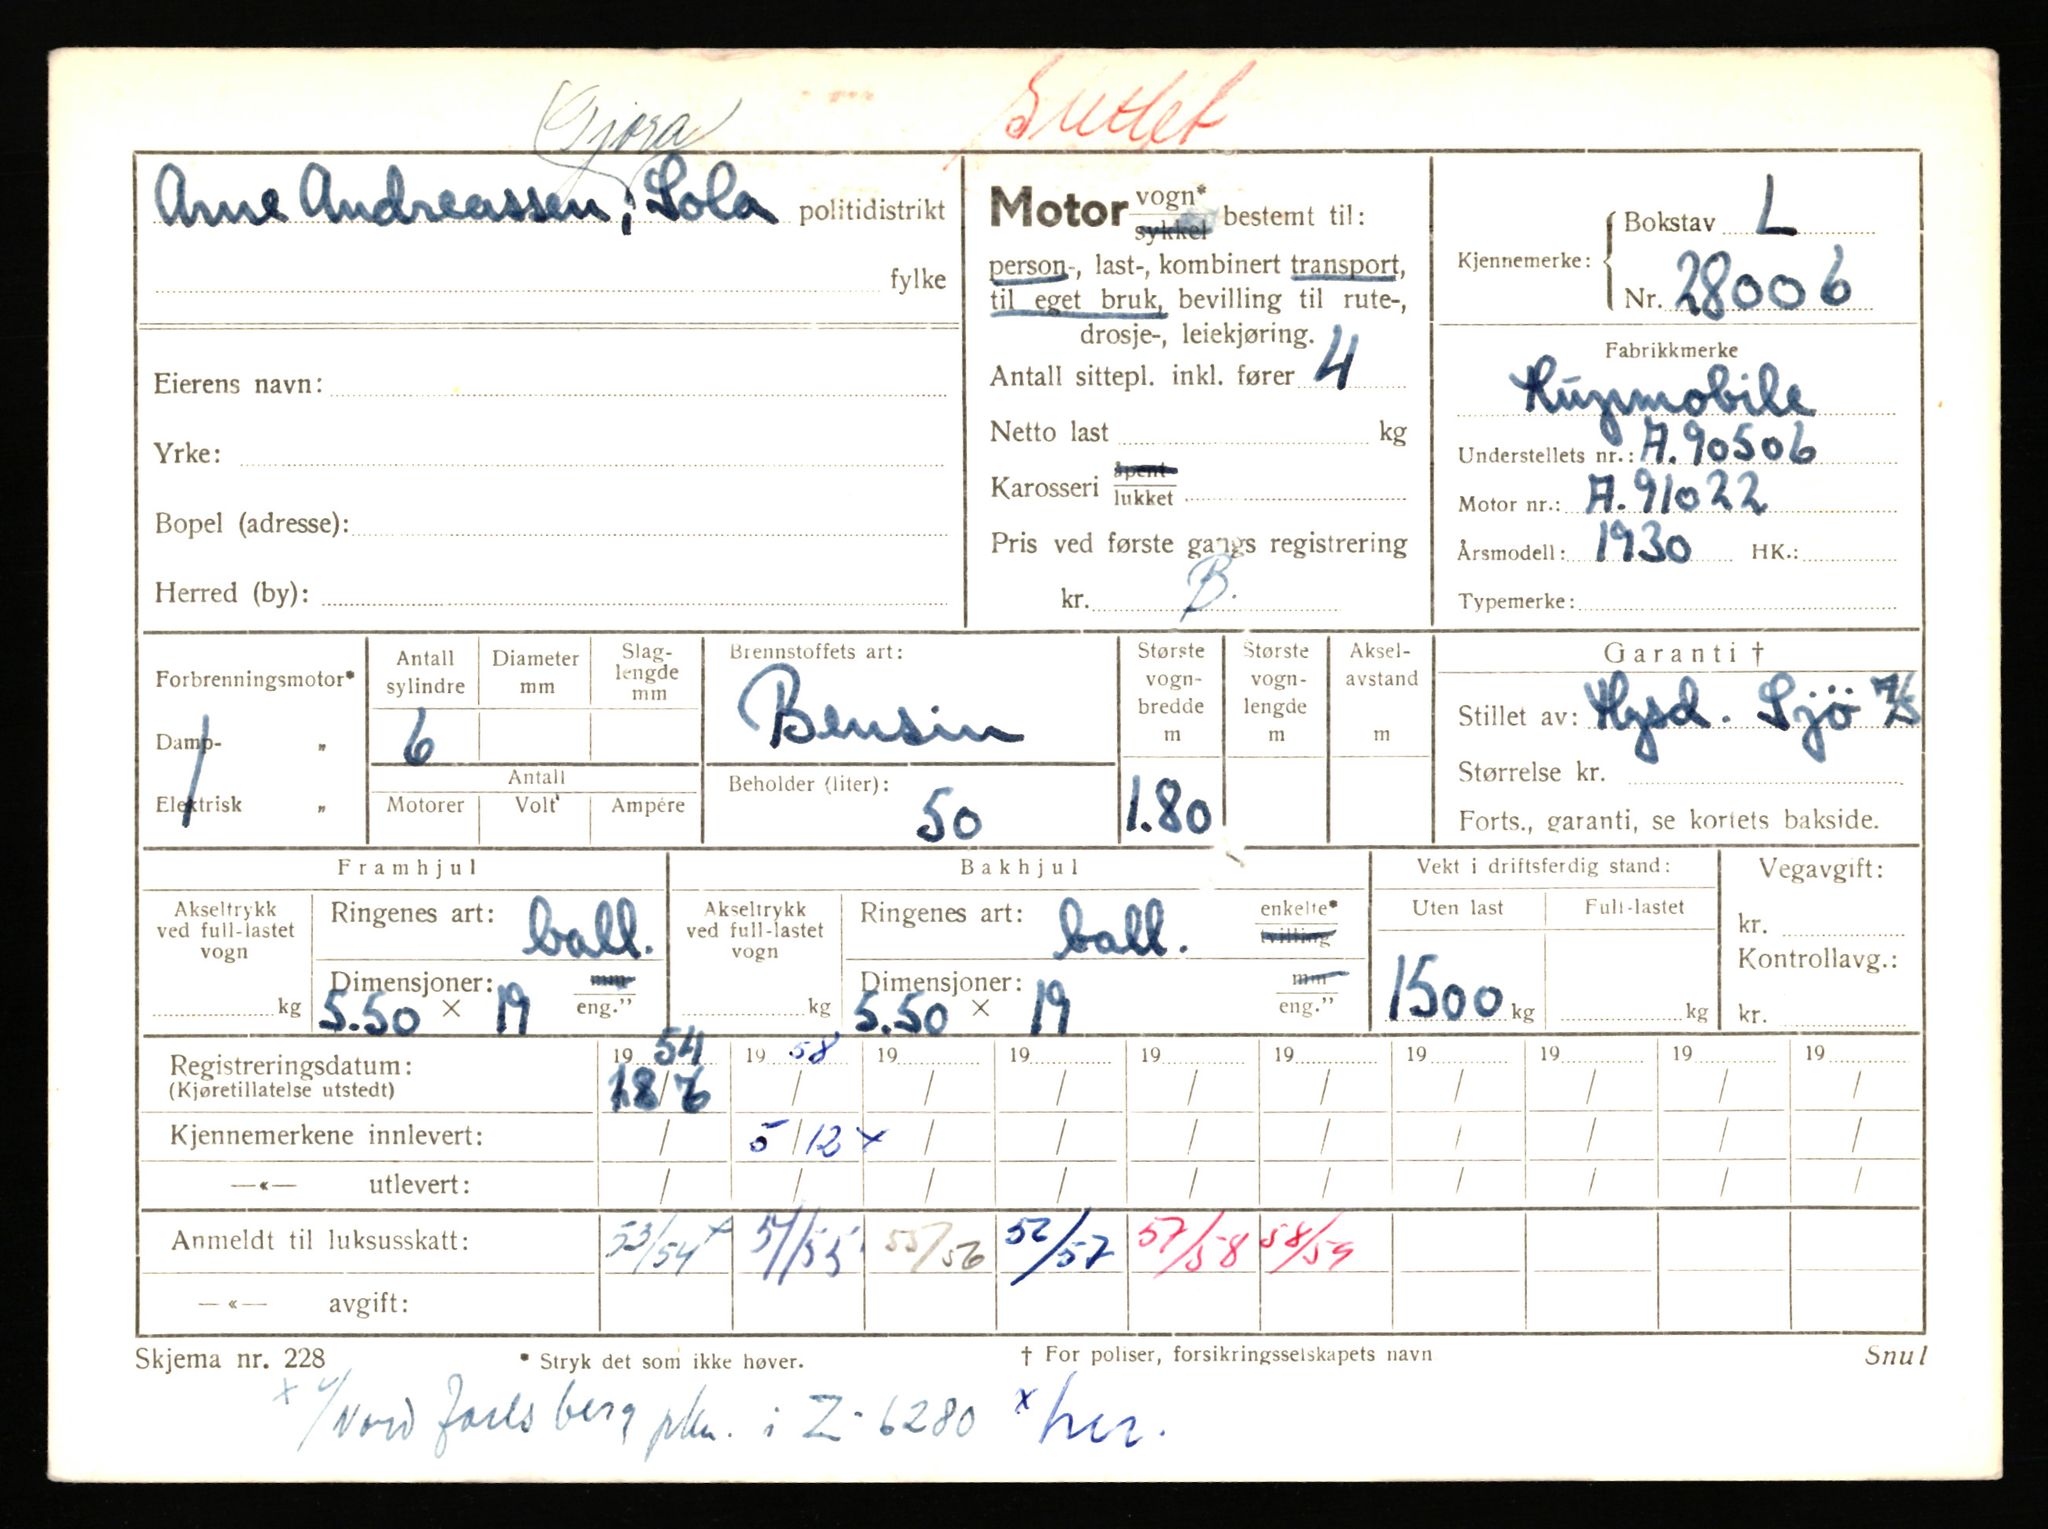 Gjøra Slettet
Arne Andreassen, Sola politidistrikt
fylke
Eierens navn:
Yrke:
Bopel (adresse):
Herred (by):
Motor vogn* sykkel bestemt til:
person-, last-, kombinert transport,
til eget bruk, bevilling til rute-,
drosje-, leiekjøring.
Antall sittepl. inkl. fører 4
Netto last kg
Karosseri åpent lukket
Pris ved første gangs registrering
kr. B.
Kjennemerke: Bokstav L
Nr. 28006
Fabrikkmerke
Hupmobile
Understellets nr.: A.90506
Motor nr.: A.91022
Årsmodell: 1930 HK.:
Typemerke:
Forbrenningsmotor*
Damp- „
Elektrisk „
Antall sylindre 6
Diameter mm
Slaglengde mm
Antall
Motorer Volt Ampére
Brennstoffets art:
Bensin
Beholder (liter):
50
Største vogn-bredde m
1.80
Største vogn-lengde m
Aksel-avstand m
Garanti †
Stillet av: Hysd. Sjö
Størrelse kr.
Forts., garanti, se kortets bakside.
Framhjul
Akseltrykk ved full-lastet vogn kg
Ringenes art: ball.
Dimensjoner: mm eng."
5.50 × 19
Bakhjul
Akseltrykk ved full-lastet vogn kg
Ringenes art: ball. enkelte* tvilling
Dimensjoner: mm eng."
5.50 × 19
Vekt i driftsferdig stand:
Uten last Full-lastet
1500 kg kg
Vegavgift:
kr.
Kontrollavg.:
kr.
Registreringsdatum: 19 54 19 58 19 19 19 19 19 19 19 19
(Kjøretillatelse utstedt) 18/6 / / / / / / / / /
Kjennemerkene innlevert: / 5/12 x / / / / / / / /
—«— utlevert: / / / / / / / / / /
Anmeldt til luksusskatt: 53/54 x 54/55 55/56 56/57 57/58 58/59
—«— avgift:
Skjema nr. 228 * Stryk det som ikke høver. † For poliser, forsikringsselskapets navn Snul
x 4/ Nord Jarlsberg pkm. i Z-6280 x her.